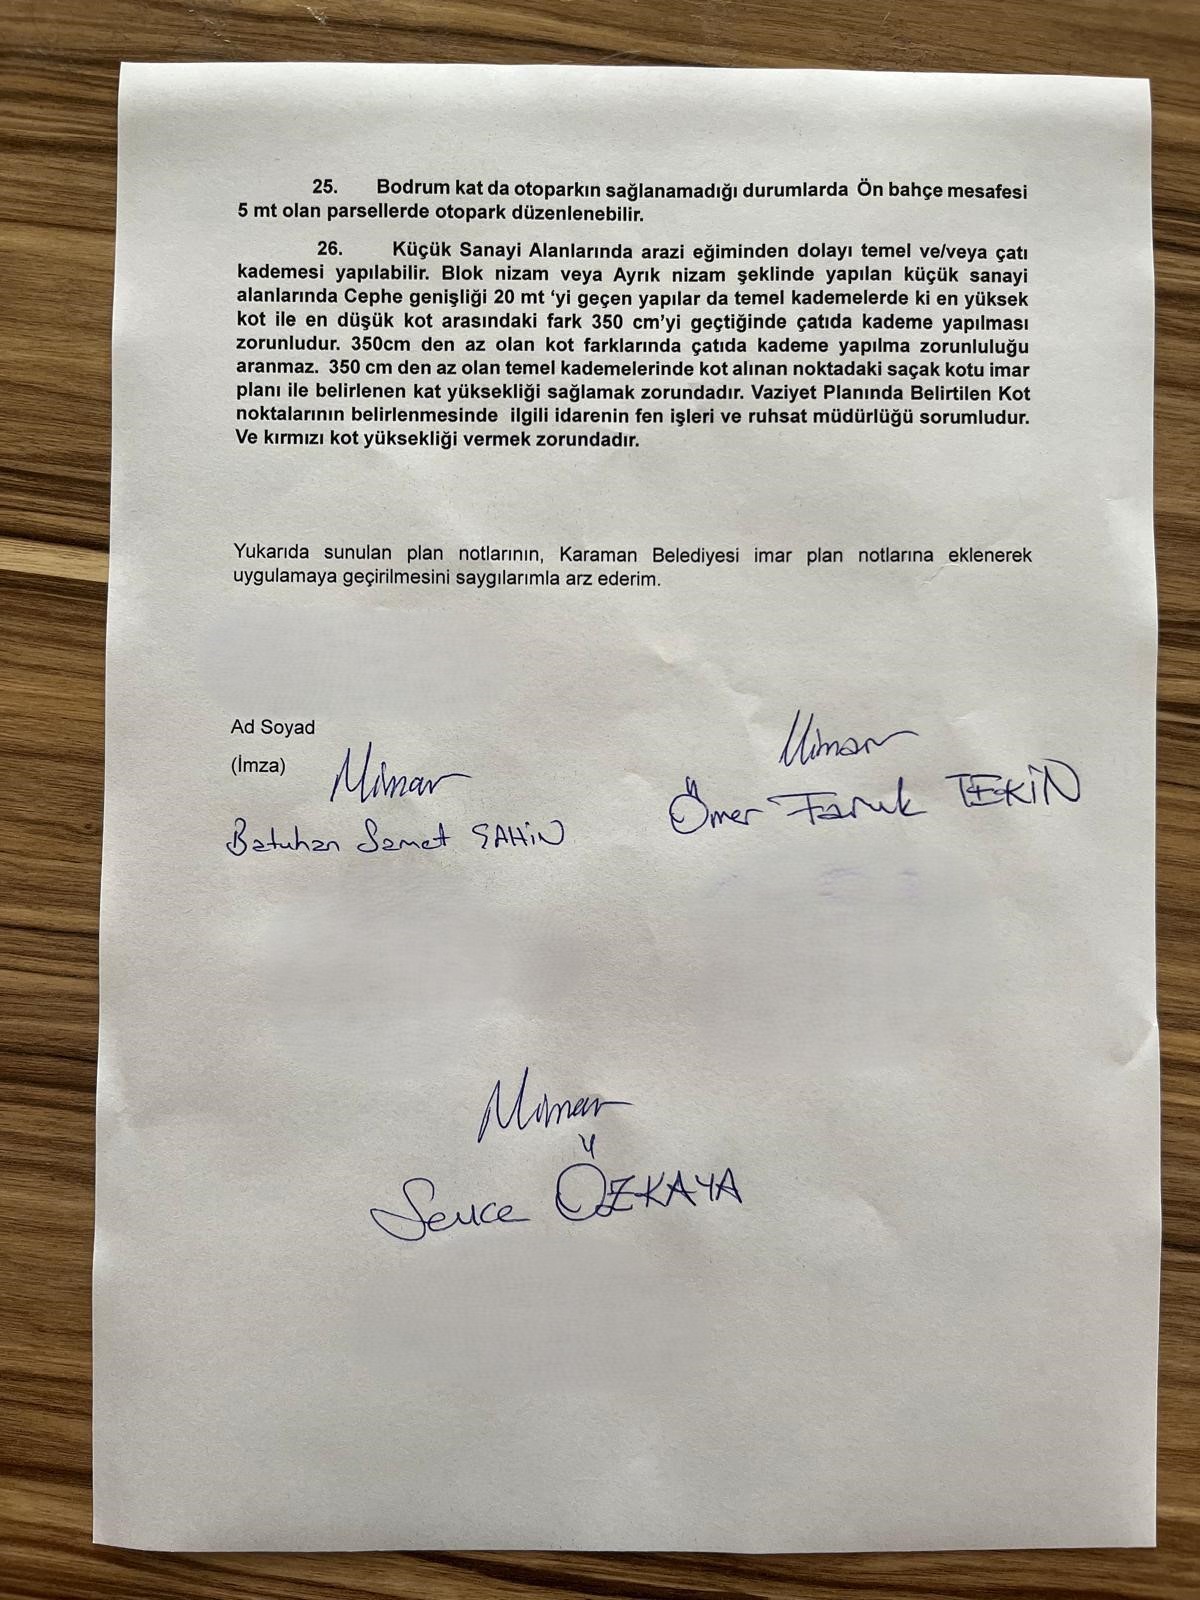 25. Bodrum kat da otoparkın sağlanamadığı durumlarda Ön bahçe mesafesi
5 mt olan parsellerde otopark düzenlenebilir.
26. Küçük Sanayi Alanlarında arazi eğiminden dolayı temel ve/veya çatı
kademesi yapılabilir. Blok nizam veya Ayrık nizam şeklinde yapılan küçük sanayi
alanlarında Cephe genişliği 20 mt ‘yi geçen yapılar da temel kademelerde ki en yüksek
kot ile en düşük kot arasındaki fark 350 cm’yi geçtiğinde çatıda kademe yapılması
zorunludur. 350cm den az olan kot farklarında çatıda kademe yapılma zorunluluğu
aranmaz. 350 cm den az olan temel kademelerinde kot alınan noktadaki saçak kotu imar
planı ile belirlenen kat yüksekliği sağlamak zorundadır. Vaziyet Planında Belirtilen Kot
noktalarının belirlenmesinde ilgili idarenin fen işleri ve ruhsat müdürlüğü sorumludur.
Ve kırmızı kot yüksekliği vermek zorundadır.
Yukarıda sunulan plan notlarının, Karaman Belediyesi imar plan notlarına eklenerek
uygulamaya geçirilmesini saygılarımla arz ederim.
Ad Soyad
(İmza)
Mimar
Batuhan Samet ŞAHİN
Mimar
Ömer Faruk TEKİN
Mimar
ÖZKAYA